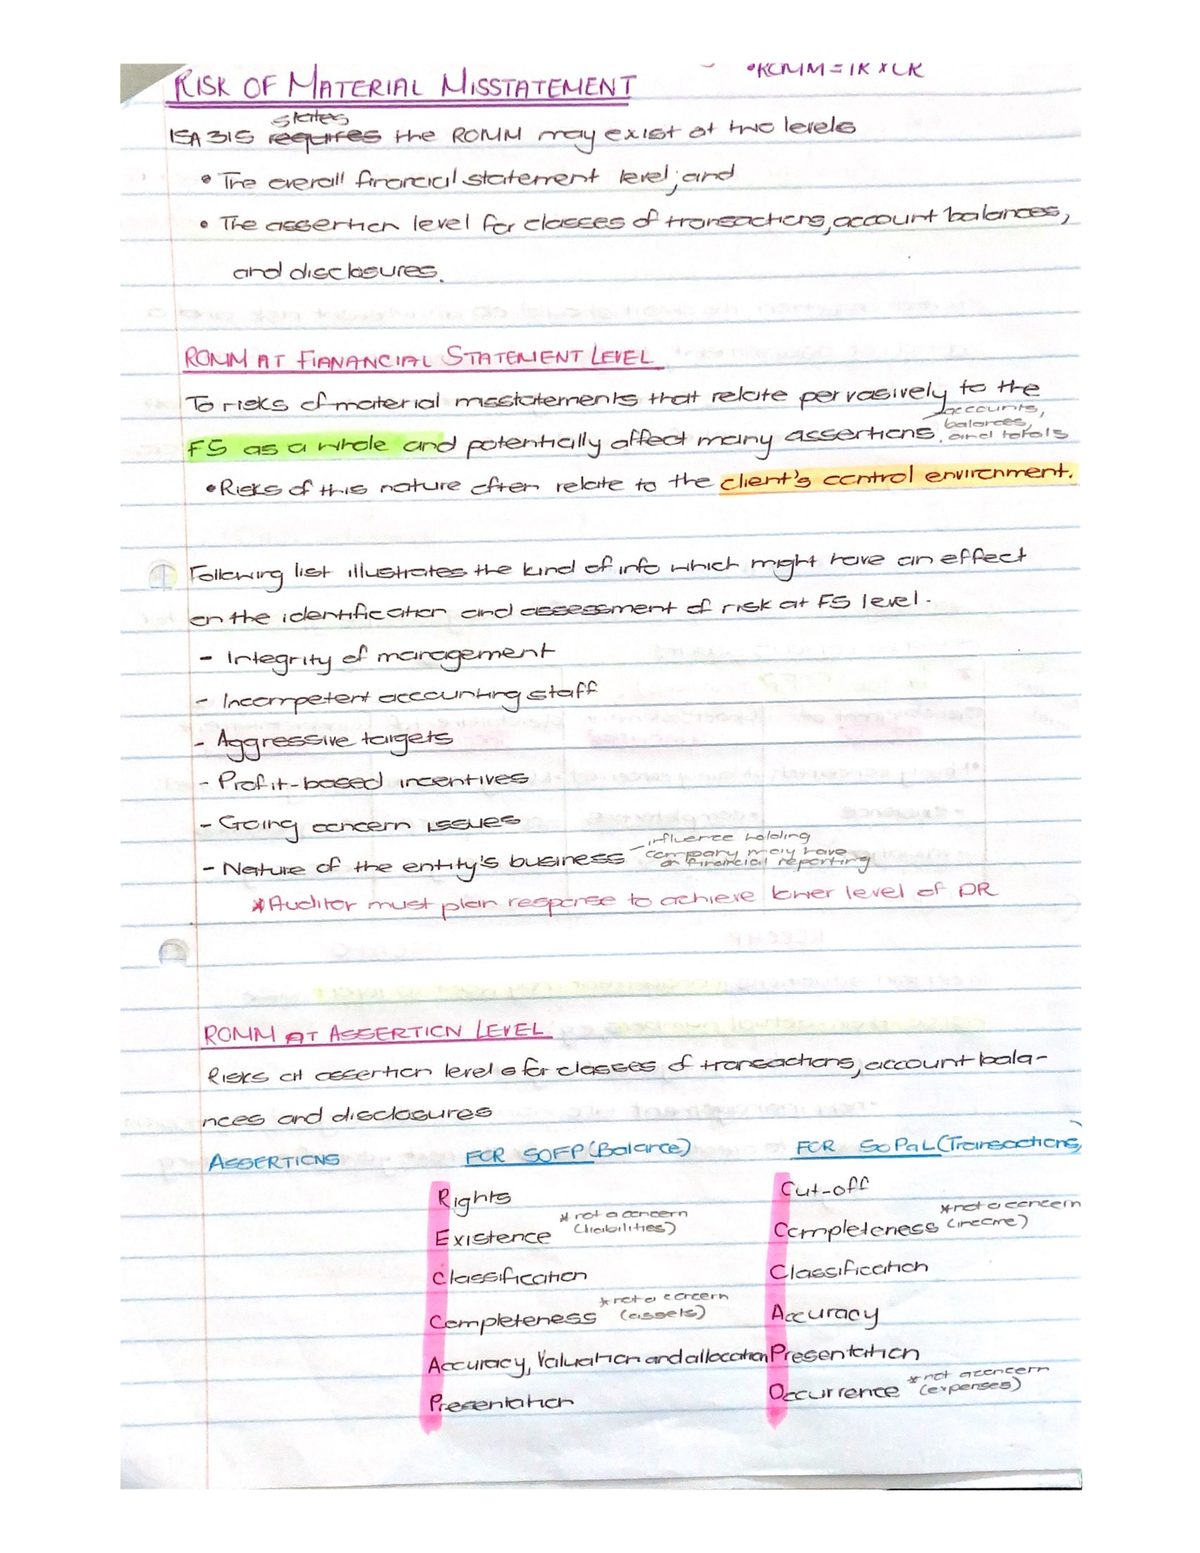 •ROMM = IR × CR
RISK OF MATERIAL MISSTATEMENT
states
ISA 315 requires the ROMM may exist at two levels
• The overall financial statement level; and
• The assertion level for classes of transactions, account balances,
and disclosures.
ROMM AT FIANANCIAL STATEMENT LEVEL
To risks of material misstatements that relate pervasively to the
FS as a whole and potentially affect many assertions, accounts,
balances,
and totals
• Risks of this nature often relate to the client's control environment.
Following list illustrates the kind of info which might have an effect
on the identification and assessment of risk at FS level.
- Integrity of management
- Incompetent accounting staff
- Aggressive targets
- Profit-based incentives
- Going concern issues
- Nature of the entity's business - influence holding
company may have
on financial reporting
* Auditor must plan response to achieve lower level of DR
ROMM AT ASSERTION LEVEL
Risks at assertion level for classes of transactions, account bala-
nces and disclosures
ASSERTIONS FOR SOFP (Balance) FOR SoPaL (Transactions)
Rights Cut-off
Existence * not a concern (liabilities) Completeness * not a concern (income)
Classification Classification
Completeness * not a concern (assets) Accuracy
Accuracy, Valuation and allocation Presentation
Presentation Occurrence * not a concern (expenses)